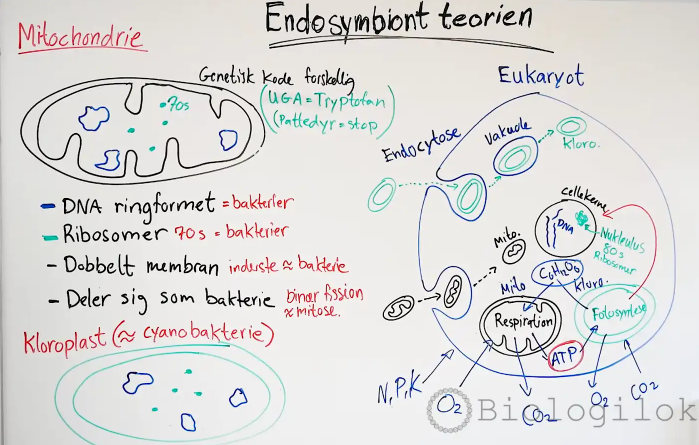 Endosymbiont teorien
Mitochondrie
Genetisk kode forskellig
(UGA = Tryptofan
(Pattedyr = stop)
70s
- DNA ringformet = bakterier
- Ribosomer 70s = bakterier
- Dobbelt membran inderste ≈ bakterie
- Deler sig som bakterie binær fission
≈ mitose.
Kloroplast (≈ cyanobakterie)
Eukaryot
Endocytose
Vakuole
Kloro.
Cellekerne
DNA
Nukleulus
80s
Ribosomer
Mito.
C6H12O6
Mito
Kloro.
Respiration
Fotosyntese
ATP
N, P, K
O2
CO2
O2
CO2
Biologilok